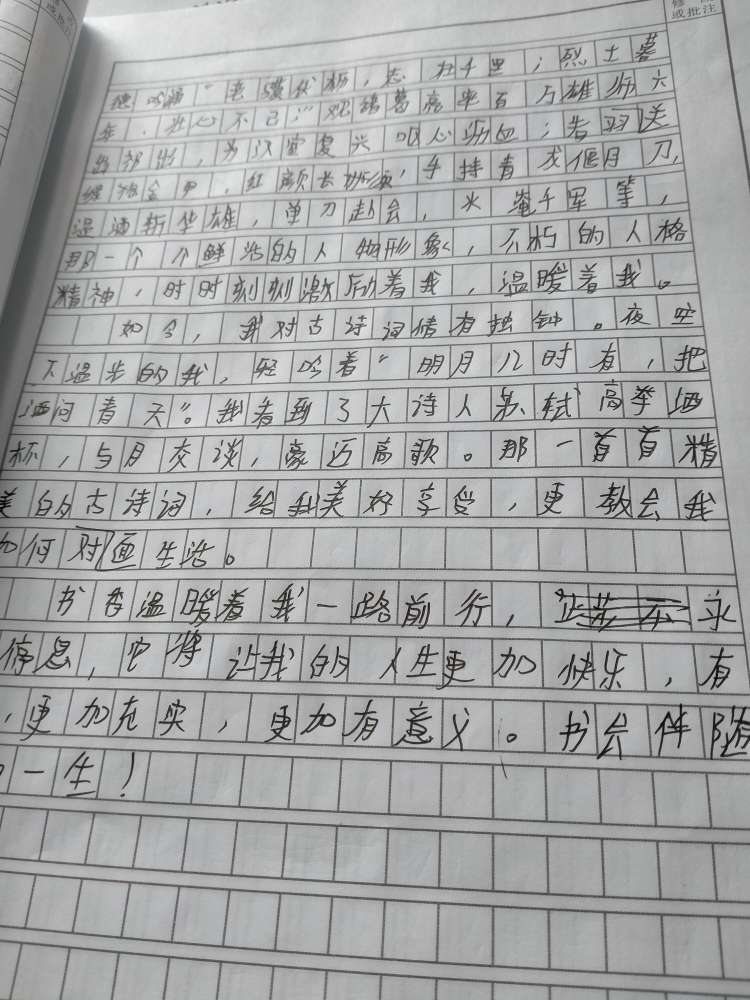 修
或批注
或批注
吟诵“老骥伏枥，志在千里；烈士暮
年，壮心不已；”观诸葛亮率百万雄师六
出祁出，为汉室复兴呕心沥血；关羽
，红颜长，手持青龙偃月刀，
温酒斩华雄，单刀赴会，水淹千军等，
那一个个鲜活的人物形象，不朽的人格
精神，时时刻刻激励着我，温暖着我。
如今，我对古诗词情有独钟。夜空
下温步的我，轻吟着“明月几时有，把
酒问青天”。我看到了大诗人苏轼高举酒
杯，与月交谈，豪迈高歌。那一首首精
美的古诗词，给我美好享受，更教会我
如何对面生活。
书香温暖着我一路前行，永
停息，它将让我的人生更加快乐，有
，更加充实，更加有意义。书会伴随
一生！